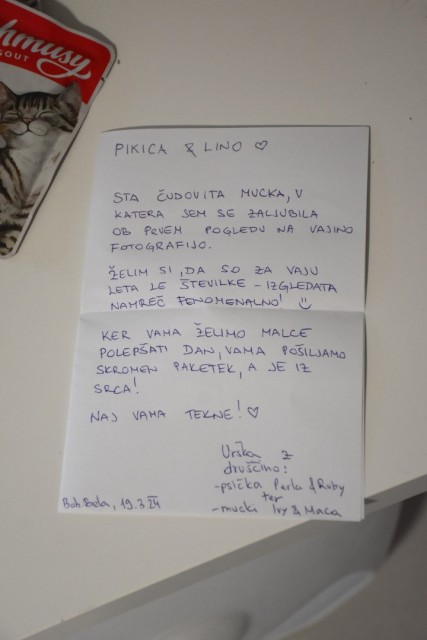 hmusy
GOUT
PIKICA & LINO ♡
STA ČUDOVITA MUCKA, V
KATERA SEM SE ZALJUBILA
OB PRVEM POGLEDU NA VAJINO
FOTOGRAFIJO.
ŽELIM SI, DA SO ZA VAJU
LETA LE ŠTEVILKE – IZGLEDATA
NAMREČ FENOMENALNO! ☺
KER VAMA ŽELIMO MALCE
POLEPŠATI DAN, VAMA POŠILJAMO
SKROMEN PAKETEK, A JE IZ
SRCA!
NAJ VAMA TEKNE! ♡
Urška z
druščino:
-psička Perla & Ruby
ter
-mucki Ivy & Maca
Boh. Bela, 19.3.24